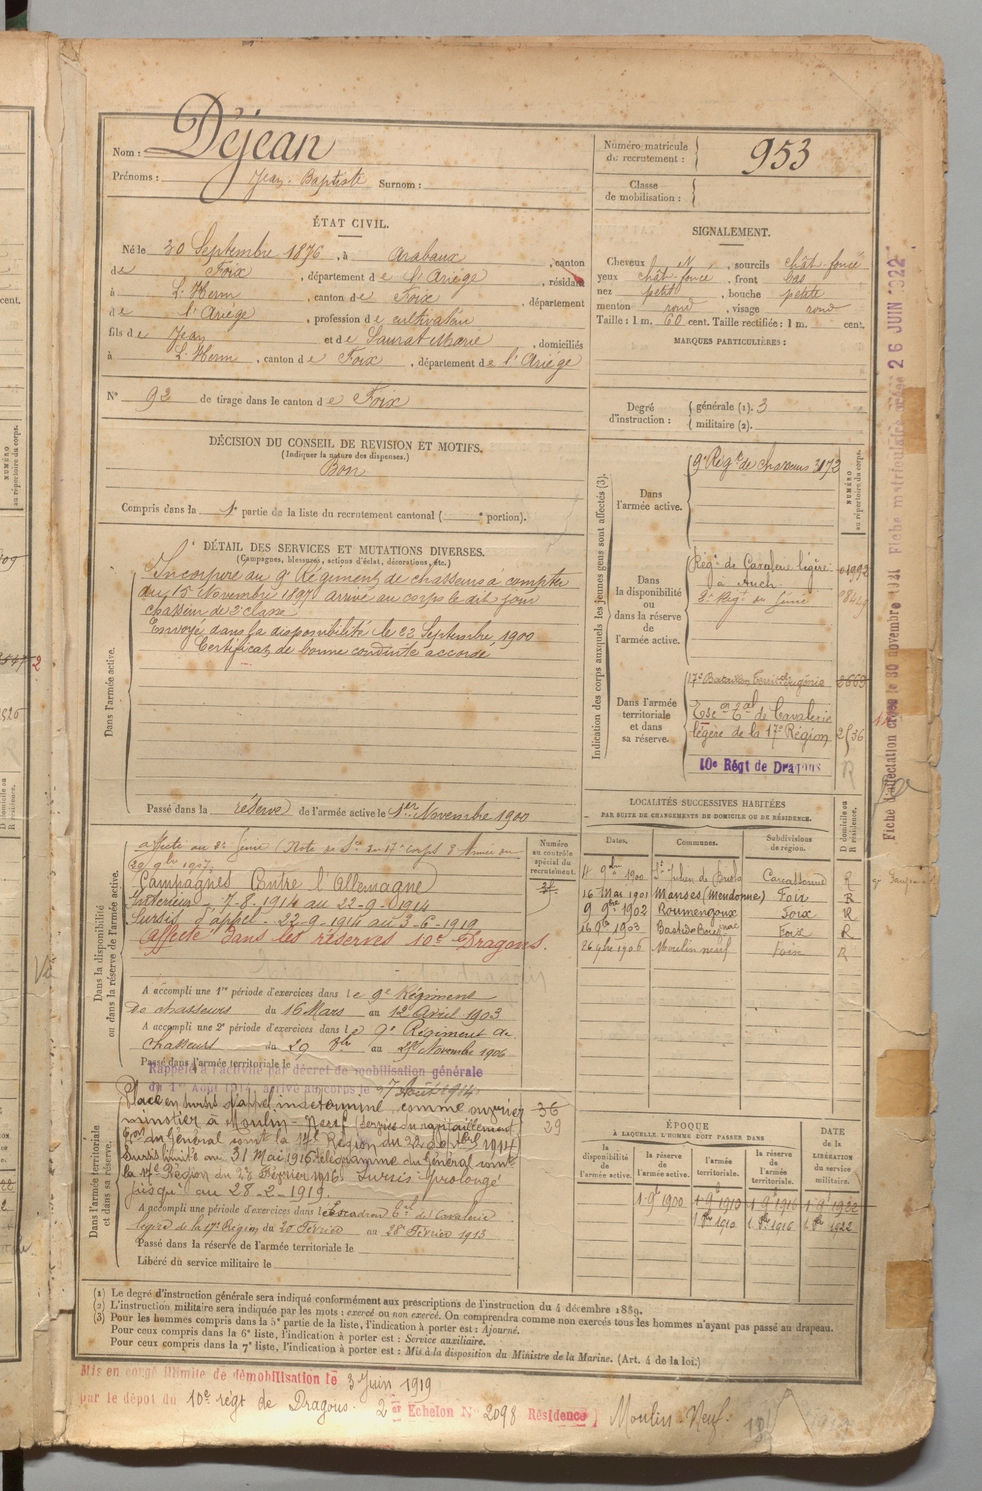 Nom : Déjean
Prénoms : Jean-Baptiste Surnom :
Numéro matricule
de recrutement : 953
Classe
de mobilisation :
ÉTAT CIVIL.
Né le 30 Septembre 1876, à Arabaux, canton
de Foix, département de l'Ariège, résidant
à L'Herm, canton de Foix, département
de l'Ariège, profession de cultivateur
fils de Jean et de Saurat Marie, domiciliés
à L'Herm, canton de Foix, département de l'Ariège
N° 92 de tirage dans le canton de Foix
SIGNALEMENT.
Cheveux N, sourcils chât. foncé
yeux chât. foncé, front bas
nez petit, bouche petite
menton rond, visage rond
Taille : 1 m. 60 cent. Taille rectifiée : 1 m. cent.
MARQUES PARTICULIÈRES :
Degré
d'instruction :
générale (1). 3
militaire (2).
DÉCISION DU CONSEIL DE REVISION ET MOTIFS.
(Indiquer la nature des dispenses.)
Bon
Compris dans la 1e partie de la liste du recrutement cantonal ( e portion).
DÉTAIL DES SERVICES ET MUTATIONS DIVERSES.
(Campagnes, blessures, actions d'éclat, décorations, etc.)
Dans l'armée active.
Incorporé au 9e Régiment de chasseurs à compter
du 15 Novembre 1897 arrivé au corps le dit jour
chasseur de 2e classe
Envoyé dans la disponibilité le 22 Septembre 1900
Certificat de bonne conduite accordé
Passé dans la réserve de l'armée active le 1er Novembre 1900
Indication des corps auxquels les jeunes gens sont affectés (3).
NUMÉRO
au répertoire du corps.
Dans
l'armée active.
9e Régt de chasseurs 3172
Dans
la disponibilité
ou
dans la réserve
de
l'armée active.
Régt de Cavalerie légère
à Auch
2e Régt du Génie
Dans l'armée
territoriale
et dans
sa réserve.
17e Bataillon Territ. du génie 2669
Esc on Tal de Cavalerie
légère de la 17e Région
10e Régt de Dragons
R
Fiche d'affectation créée le 30 novembre 1921 Fiche matriculaire créée 26 JUIN 1922
LOCALITÉS SUCCESSIVES HABITÉES
PAR SUITE DE CHANGEMENTS DE DOMICILE OU DE RÉSIDENCE.
Dates. Communes. Subdivisions
de région.
D domicile ou
R résidence.
11 9bre 1900 Carcassonne R
16 Mai 1901 Manses (Mendonne) Foix R
9 9bre 1902 Roumengoux Foix R
16 9bre 1903 Foix R
26 9bre 1906 Moulin neuf Foix R
Dans la disponibilité
ou dans la réserve de l'armée active.
Numéro
au contrôle
spécial du
recrutement.
Campagnes Contre l'Allemagne
Intérieur 7-8-1914 au 22-9-1914
Sursis d'appel 22-9-1914 au 3-6-1919
Affecté dans les réserves 10e Dragons.
A accompli une 1re période d'exercices dans le 9e Régiment
de chasseurs du 16 Mars au 12 Avril 1903
A accompli une 2e période d'exercices dans le 9e Régiment de
chasseurs du 29 8bre au 25 Novembre 1906
Passé dans l'armée territoriale le
Rappelé à l'activité par décret de mobilisation générale
du 1er Août 1914, arrivé au corps le 7 Août 1914
Dans l'armée territoriale
et dans sa réserve.
Placé en sursis d'appel indéterminé, comme ouvrier 36
minotier à Moulin-Neuf (service du ravitaillement) 39
du Général comt la 17e Région du 22 septbre 1914
Sursis limité au 31 Mai 1916 télégramme du Général comt
la 17e Région du 26 Février 1916. Sursis prolongé
jusqu'au 28-2-1919.
A accompli une période d'exercices dans l'Escadron Tal de Cavalerie
légère de la 17e Région du 20 Février au 28 Février 1913
Passé dans la réserve de l'armée territoriale le
Libéré du service militaire le
ÉPOQUE
À LAQUELLE L'HOMME DOIT PASSER DANS
la
disponibilité
de
l'armée active.
la réserve
de
l'armée active.
l'armée
territoriale.
la réserve
de
l'armée
territoriale.
DATE
de la
LIBÉRATION
du service
militaire.
1 9e 1900 1 9e 1910 1 9e 1916 1 9e 1922
1 8bre 1910 1 8bre 1916 1 8bre 1922
(1) Le degré d'instruction générale sera indiqué conformément aux prescriptions de l'instruction du 4 décembre 1889.
(2) L'instruction militaire sera indiquée par les mots : exercé ou non exercé. On comprendra comme non exercés tous les hommes n'ayant pas passé au drapeau.
(3) Pour les hommes compris dans la 5e partie de la liste, l'indication à porter est : Ajourné.
Pour ceux compris dans la 6e liste, l'indication à porter est : Service auxiliaire.
Pour ceux compris dans la 7e liste, l'indication à porter est : Mis à la disposition du Ministre de la Marine. (Art. 4 de la loi.)
Mis en congé illimité de démobilisation le 3 Juin 1919
par le dépôt du 10e régt de Dragons. 2e Echelon N° 2098 Résidence ) Moulin-Neuf.